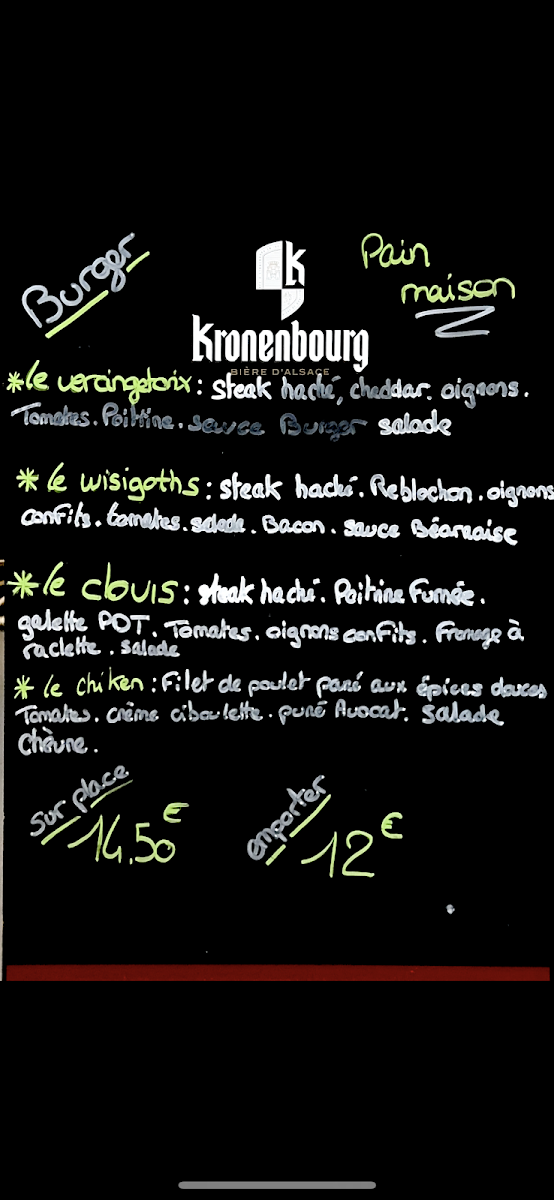 Burger
Pain
maison
Kronenbourg
BIÈRE D'ALSACE
*le vercingetorix : steak haché, cheddar. oignons.
Tomates. Poitrine. sauce Burger salade
* le wisigoths : steak haché. Reblochon. oignons
confits. tomates. salade. Bacon. sauce Béarnaise
* le clouis : steak haché. Poitrine Fumée.
galette PDT. Tomates. oignons confits. Fromage à
raclette. salade
* le chiken : Filet de poulet pané aux épices douces
Tomates. crème ciboulette. puré Avocat. salade
chèvre.
sur place
14.50€
emporter
12€